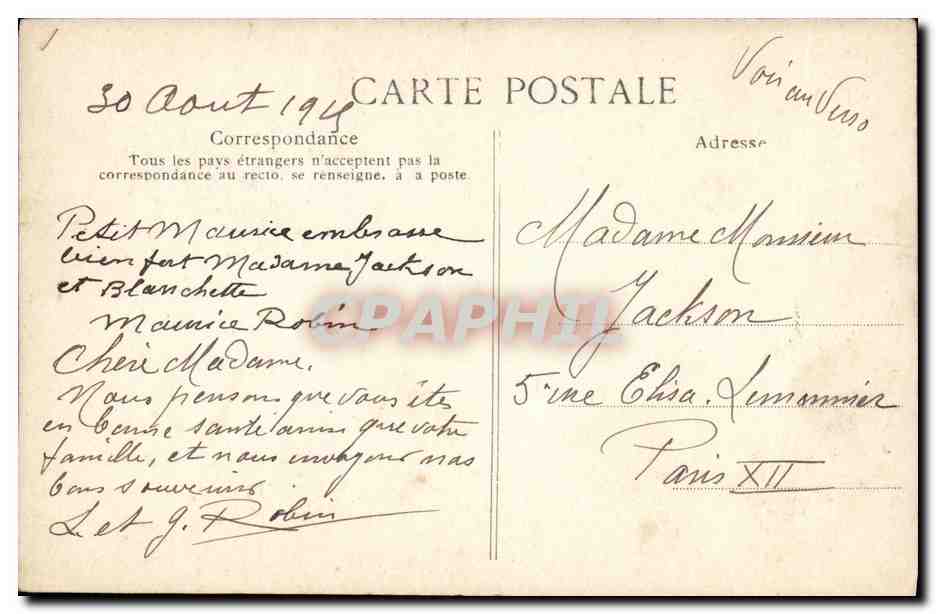 CARTE POSTALE
30 Aout 1915
Voir au Verso
Correspondance
Tous les pays étrangers n'acceptent pas la
correspondance au recto, se renseigne, à a poste
Petit Maurice embrasse
bien fort Madame Jackson
et Blanchette
Maurice Robin
Chère Madame.
Nous pensons que vous êtes
en bonne santé ainsi que votre
famille, et nous envoyons nos
bons souvenirs
L. et G. Robin
Adresse
Madame Monsieur
Jackson
5 rue Elisa. Lemonnier
Paris XII
CPAPHIL